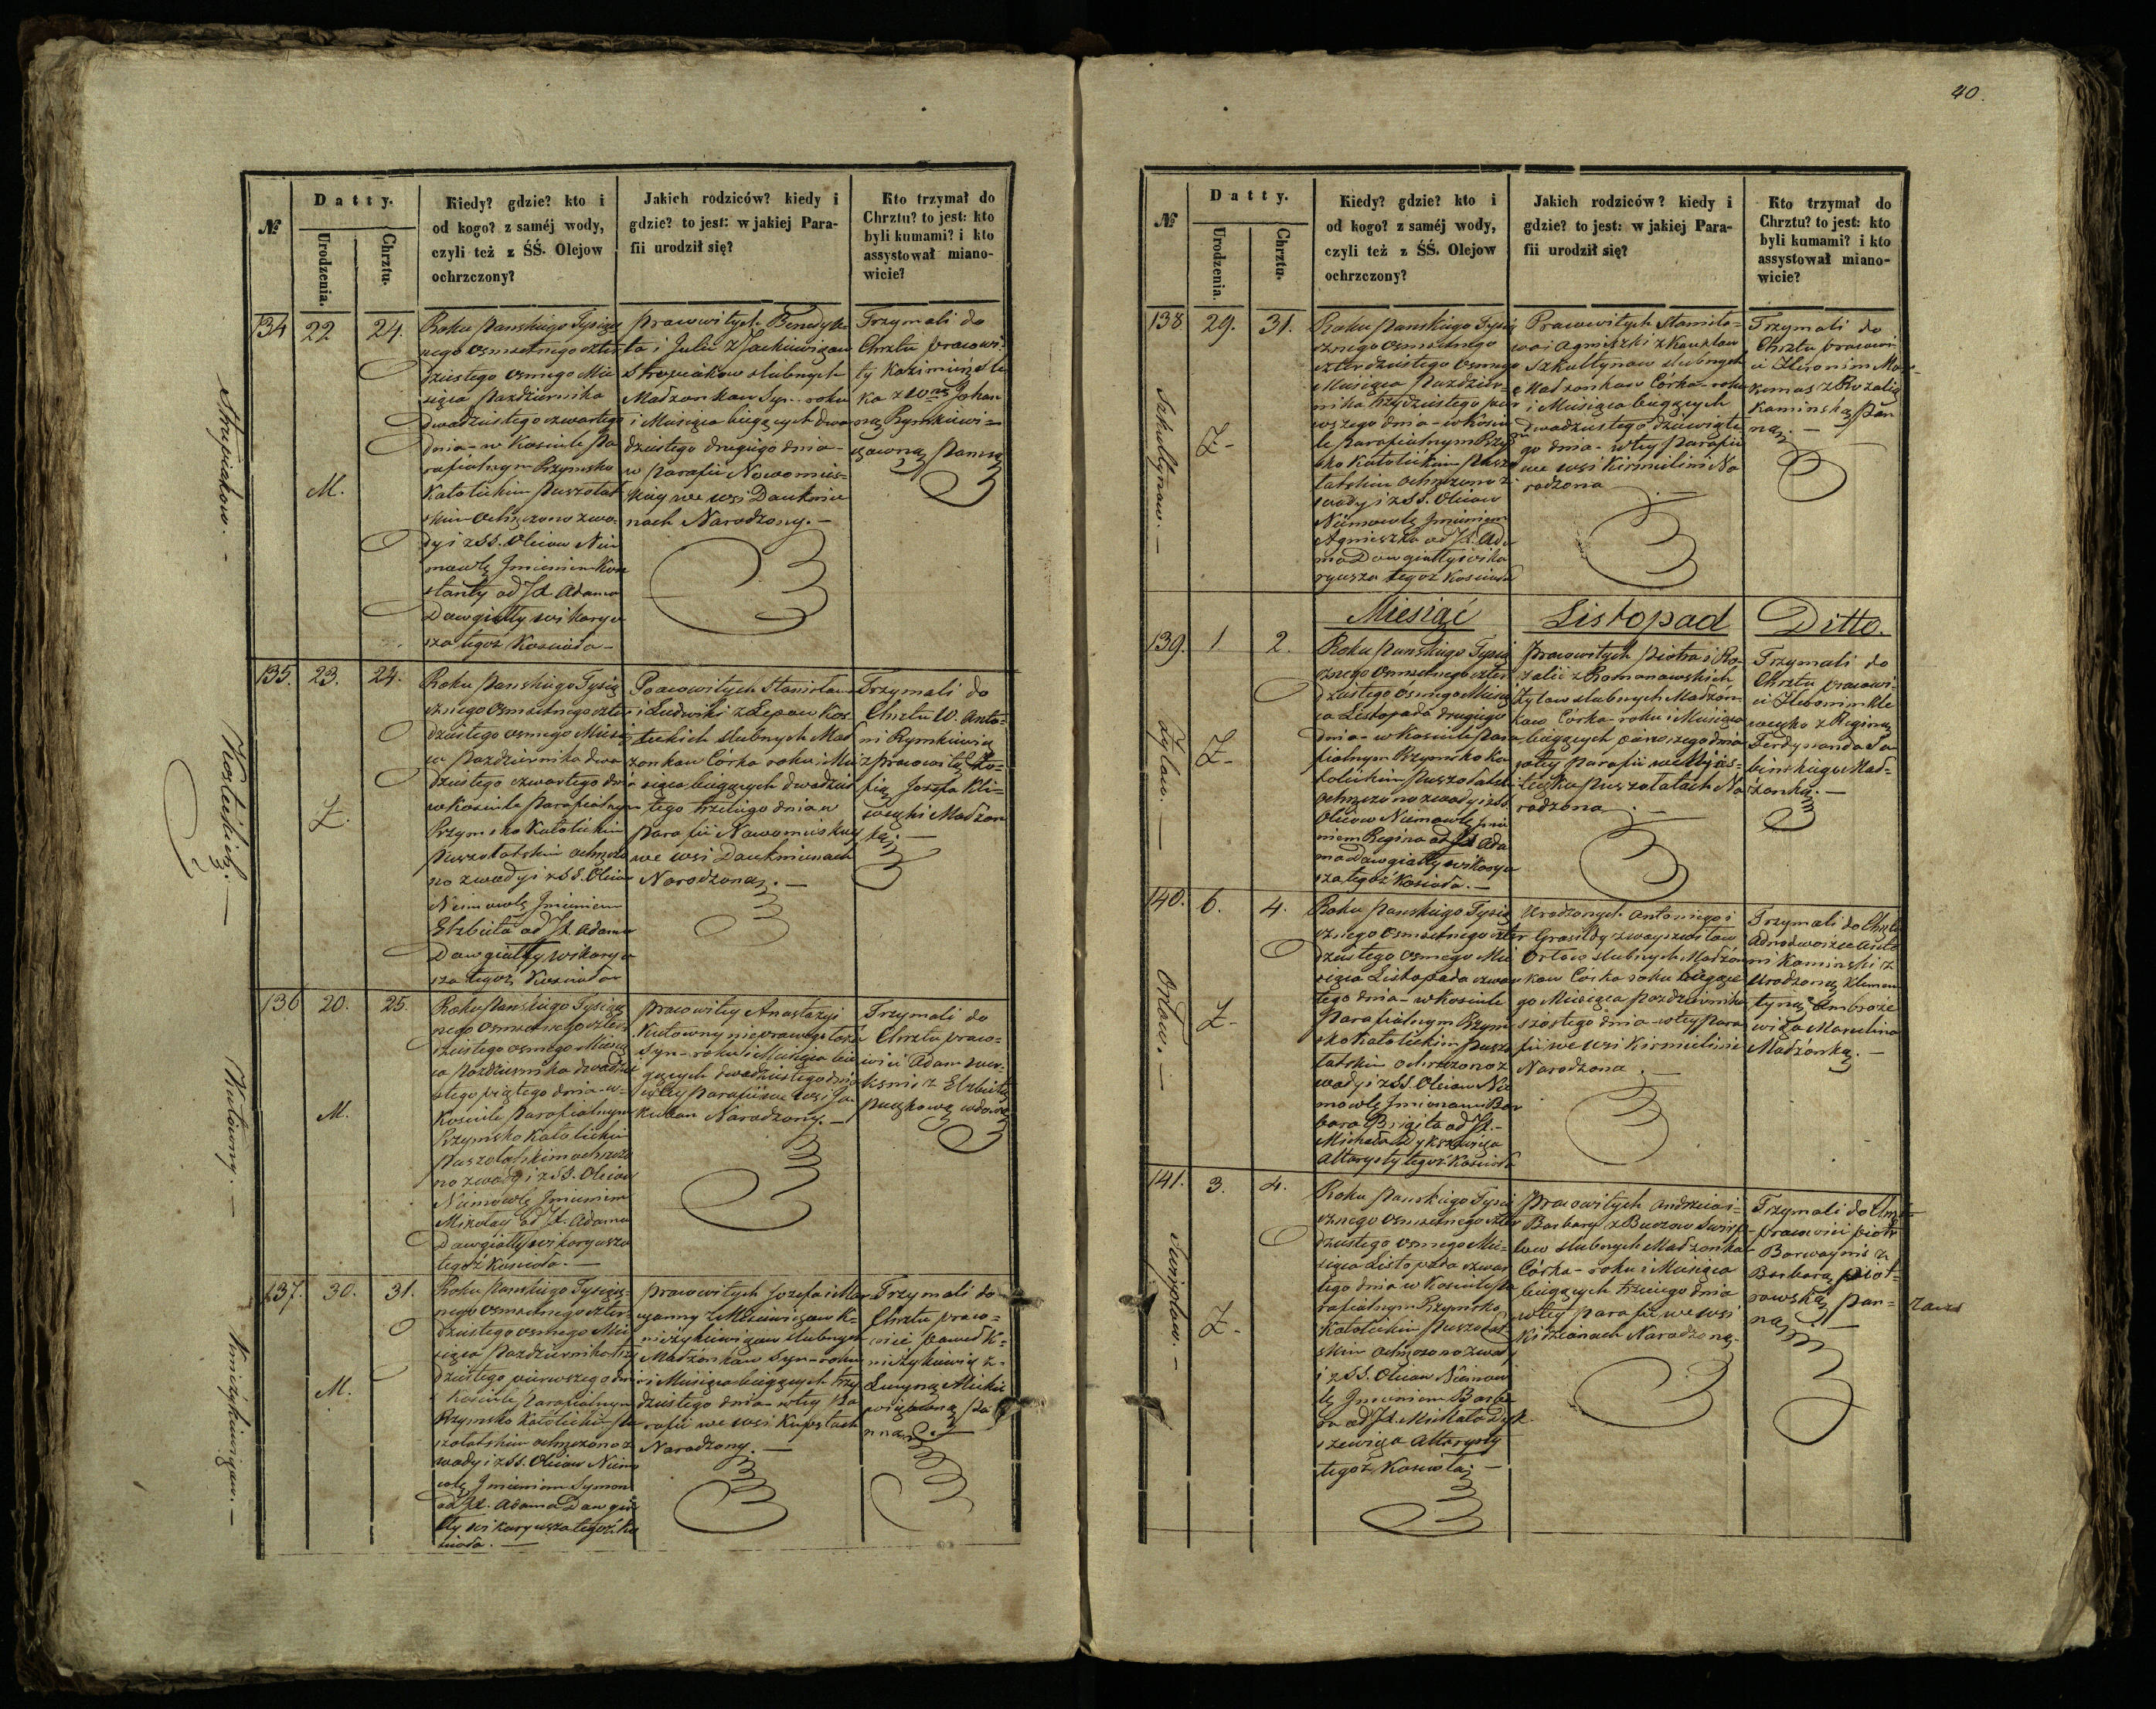 40.
№
Datty.
Urodzenia.
Chrztu.
Kiedy? gdzie? kto i
od kogo? z saméj wody,
czyli też z ŚŚ. Olejow
ochrzczony?
Jakich rodziców? kiedy i
gdzie? to jest: w jakiej Para-
fii urodził się?
Kto trzymał do
Chrztu? to jest: kto
byli kumami? i kto
assystował miano-
wicie?
134 22 24.
M.
Roku Panskiego Tysiącz
nego osmsetnego czter
dziestego osmego Mie
siąca Pazdziernika
dwadziestego czwartego
dnia - w Kosciele Pa
rafialnym Rzymsko
Katolickim Puszołat
skim Ochrzczono z wo
dy i z SS. Oleiow Nie
mowle Jmieniem Kon
stanty od JX Adama
Dawgiałły wikaryu
sza tegoż Koscioła -
Pracowitych Benedyk
ta i Julii z Jackiewiczow
slubnych
Madzonkow Syn - roku
i Miesiąca bieżących dwa
dziestego drugiego dnia -
w Parafii Nowomies-
kiey we wsi Daukniu
nach Narodzony. -
Trzymali do
Chrztu pracowi-
ty Kazimierz
ka z Johan
ną Rymkiewi-
czowną Panną
135. 23. 24.
Ż.
Roku Panskiego Tysią
cznego osmsetnego czter
dziestego osmego Miesią
ca Pazdziernika dwa
dziestego czwartego dnia
w Kosciele Parafialnym
Rzymsko Katolickim
Puszołatskim ochrzczo
no z wody i z SS. Oleiow
Niemowle Jmieniem
Elzbieta od JX Adama
Dawgiałły wikaryu
sza tegoż Koscioła
Pracowitych Stanisława
i Ludwiki z Kos-
teckich slubnych Mad
zonkow Córka roku i Mie
siąca bieżących dwadzies
tego trzeciego dnia w
Parafii Nowomieskiey
we wsi Daukniunach
Narodzona. -
Trzymali do
Chrztu W. Anto-
ni Rymkiewicz
z pracowitą Zo-
fią Jozefa Kli-
Madzon
ką. -
Kosteckich. -
136 20. 25.
M.
Roku Panskiego Tysiącz
nego osmsetnego czter
dziestego osmego Miesią
ca Pazdziernika dwadzie
stego piątego dnia - w -
Kosciele Parafialnym
Rzymsko Katolickim
Puszołatskim ochrzczo
no z wody i z SS. Oleiow
Niemowle Jmieniem
Mikołay od JX. Adama
Dawgiałły wikaryusza
tegoż Kosciola. -
Pracowitey Anastazyi
Kutowny nieprawego łoża
Syn - roku i Miesiąca bie
żących dwadziestego dnia
w tey Parafii we wsi Ja
kuban Narodzony. -
Trzymali do
Chrztu praco-
wici Adam
z Elzbietą
wdową
Kutowny. -
137. 30. 31.
M.
Roku Panskiego Tysiącz-
nego osmsetnego czter
dziestego osmego Mie
siąca Pazdziernika trzy
dziestego pierwszego dnia
w Kosciele Parafialnym
Rzymsko Katolickim Pu
szołatskim ochrzczono z
wody i z SS. Oleiow Niem
owlę Jmieniem Symon
od JX. Adama Dawgiał
ły wikaryusza tegoż Ko
scioła. -
Pracowitych Jozefa i Mar
yanny z Mickiewiczow K-
nieżykiewiczow slubnych
Madżonkow Syn - roku
i Miesiąca bieżących trzy
dziestego dnia - w tey Pa
rafii we wsi Kupstach
Narodzony. -
Trzymali do
Chrztu praco-
wici Paweł K-
nieżykiewicz z
Lucyną Mickie
wiczowną Pa
nną. -
138. 29. 31.
Ż -
Roku Panskiego Tysią
cznego osmsetnego
czterdziestego osmego
Miesiąca Pazdzier-
nika trzydziestego pier
wszego dnia - w Koscie
le Parafialnym Rzym
sko Katolickim Puszo
łatskim ochrzczono z
wody i z SS. Oleiow
Niemowlę Jmieniem
Agnieszka od JX. Ada
ma Dawgiałły wika
ryusza tegoż Kosciola
Pracowitych Stanisła-
wa i Agnieszki z
Szkultynow slubnych
Madzonkow Córka - roku
i Miesiąca bieżących
dwadziestego dziewiąte
go dnia - w tey Parafii
we wsi Kirmielini Na
rodzona
Trzymali do
Chrztu pracowi-
ci Hieronim
z Rozalią
Kaminską Pan
ną. -
Szkultynow. -
Miesiąc Listopad Ditto.
139. 1. 2.
Ż -
Roku Panskiego Tysią
cznego osmsetnego czter
dziestego osmego Miesią
ca Listopada drugiego
dnia - w Kosciele Para
fialnym Rzymsko Ka
tolickim Puszołatskim
ochrzczono z wody i z SS
Oleiow Niemowlę Jmie
niem Regina od JX Ada
ma Dawgiałły wikaryu
sza tegoż Kosciola. -
Pracowitych Piotra i Ro-
zalii z Romanowskich
Żyłow slubnych Madżon-
kow Córka - roku i Miesiąca
bieżących pierwszego dnia
w tey Parafii w Mias-
teczku Puszołatach Na
rodzona
Trzymali do
Chrztu pracowi-
ci Hieronim Kle
z Reginą
Ferdynanda Sa
binskiego Mad-
żonką. -
Żyłow. -
140. 6. 4.
Ż -
Roku Panskiego Tysią
cznego osmsetnego czter
dziestego osmego Mie
siąca Listopada czwar
tego dnia - w Kosciele
Parafialnym Rzym
sko Katolickim Puszo
łatskim ochrzczono z
wody i z SS. Oleiow Nie
mowlę Jmionami Bar
bara Brigita od JX. -
Michała Dykszewicza
Altarysty tegoż Kosciola
Urodzonych Antoniego i
Grasildy z
Orłow slubnych Madżon
kow Córka roku bieżące
go Miesiąca Pazdziernika
szostego dnia - w tey Para
fii we wsi Kirmielinie
Narodzona. -
Trzymali do Chrztu
Adnodworzec Anto
ni Kaminski z
Urodzoną Klemen
tyną Ambroże
wicza Marcelina
Madżonką. -
Orłow. -
141. 3. 4.
Ż -
Roku Panskiego Tysią
cznego osmsetnego czter
dziestego osmego Mie-
siąca Listopada czwar
tego dnia w Kosciele Pa
rafialnym Rzymsko
Katolickim Puszołat
skim ochrzczono z wody
i z SS. Oleiow Niemow
lę Jmieniem Barba
ra od JX. Michała Dyk
szewicza Altarysty
tegoż Kosciola. -
Pracowitych Andrzeia i -
Barbary z
slubnych Madzonkow
Córka - roku i Miesiąca
bieżących trzeciego dnia
w tey Parafii we wsi
Kidzianach Narodzona. -
Trzymali do Chrz
pracowici Piotr
z
Barbarą Piot-
rowską Pan-
ną